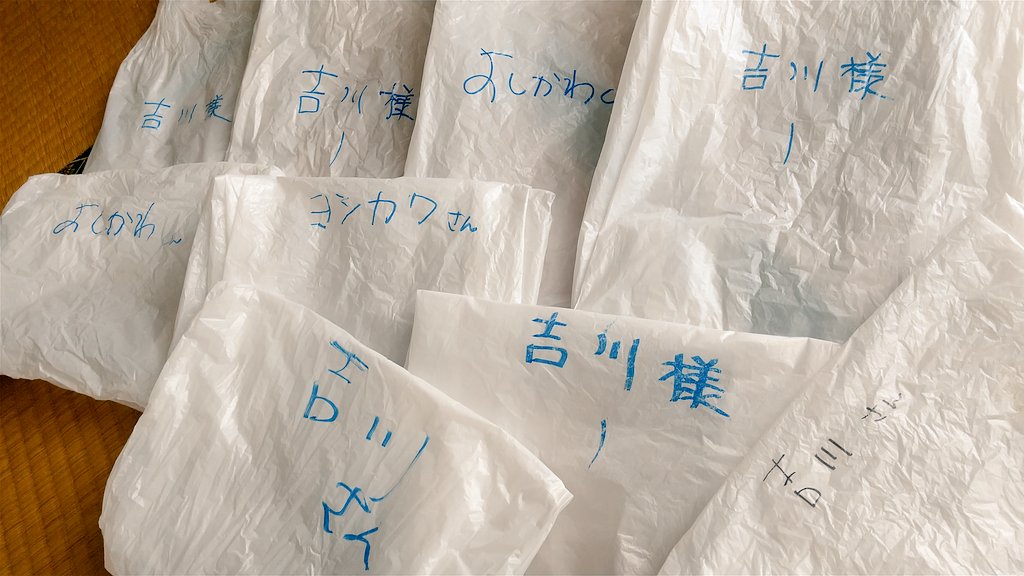 吉川様
吉川様
よしかわ
吉川様
よしかわ
ヨシカワさん
吉川
吉川様
吉川さん